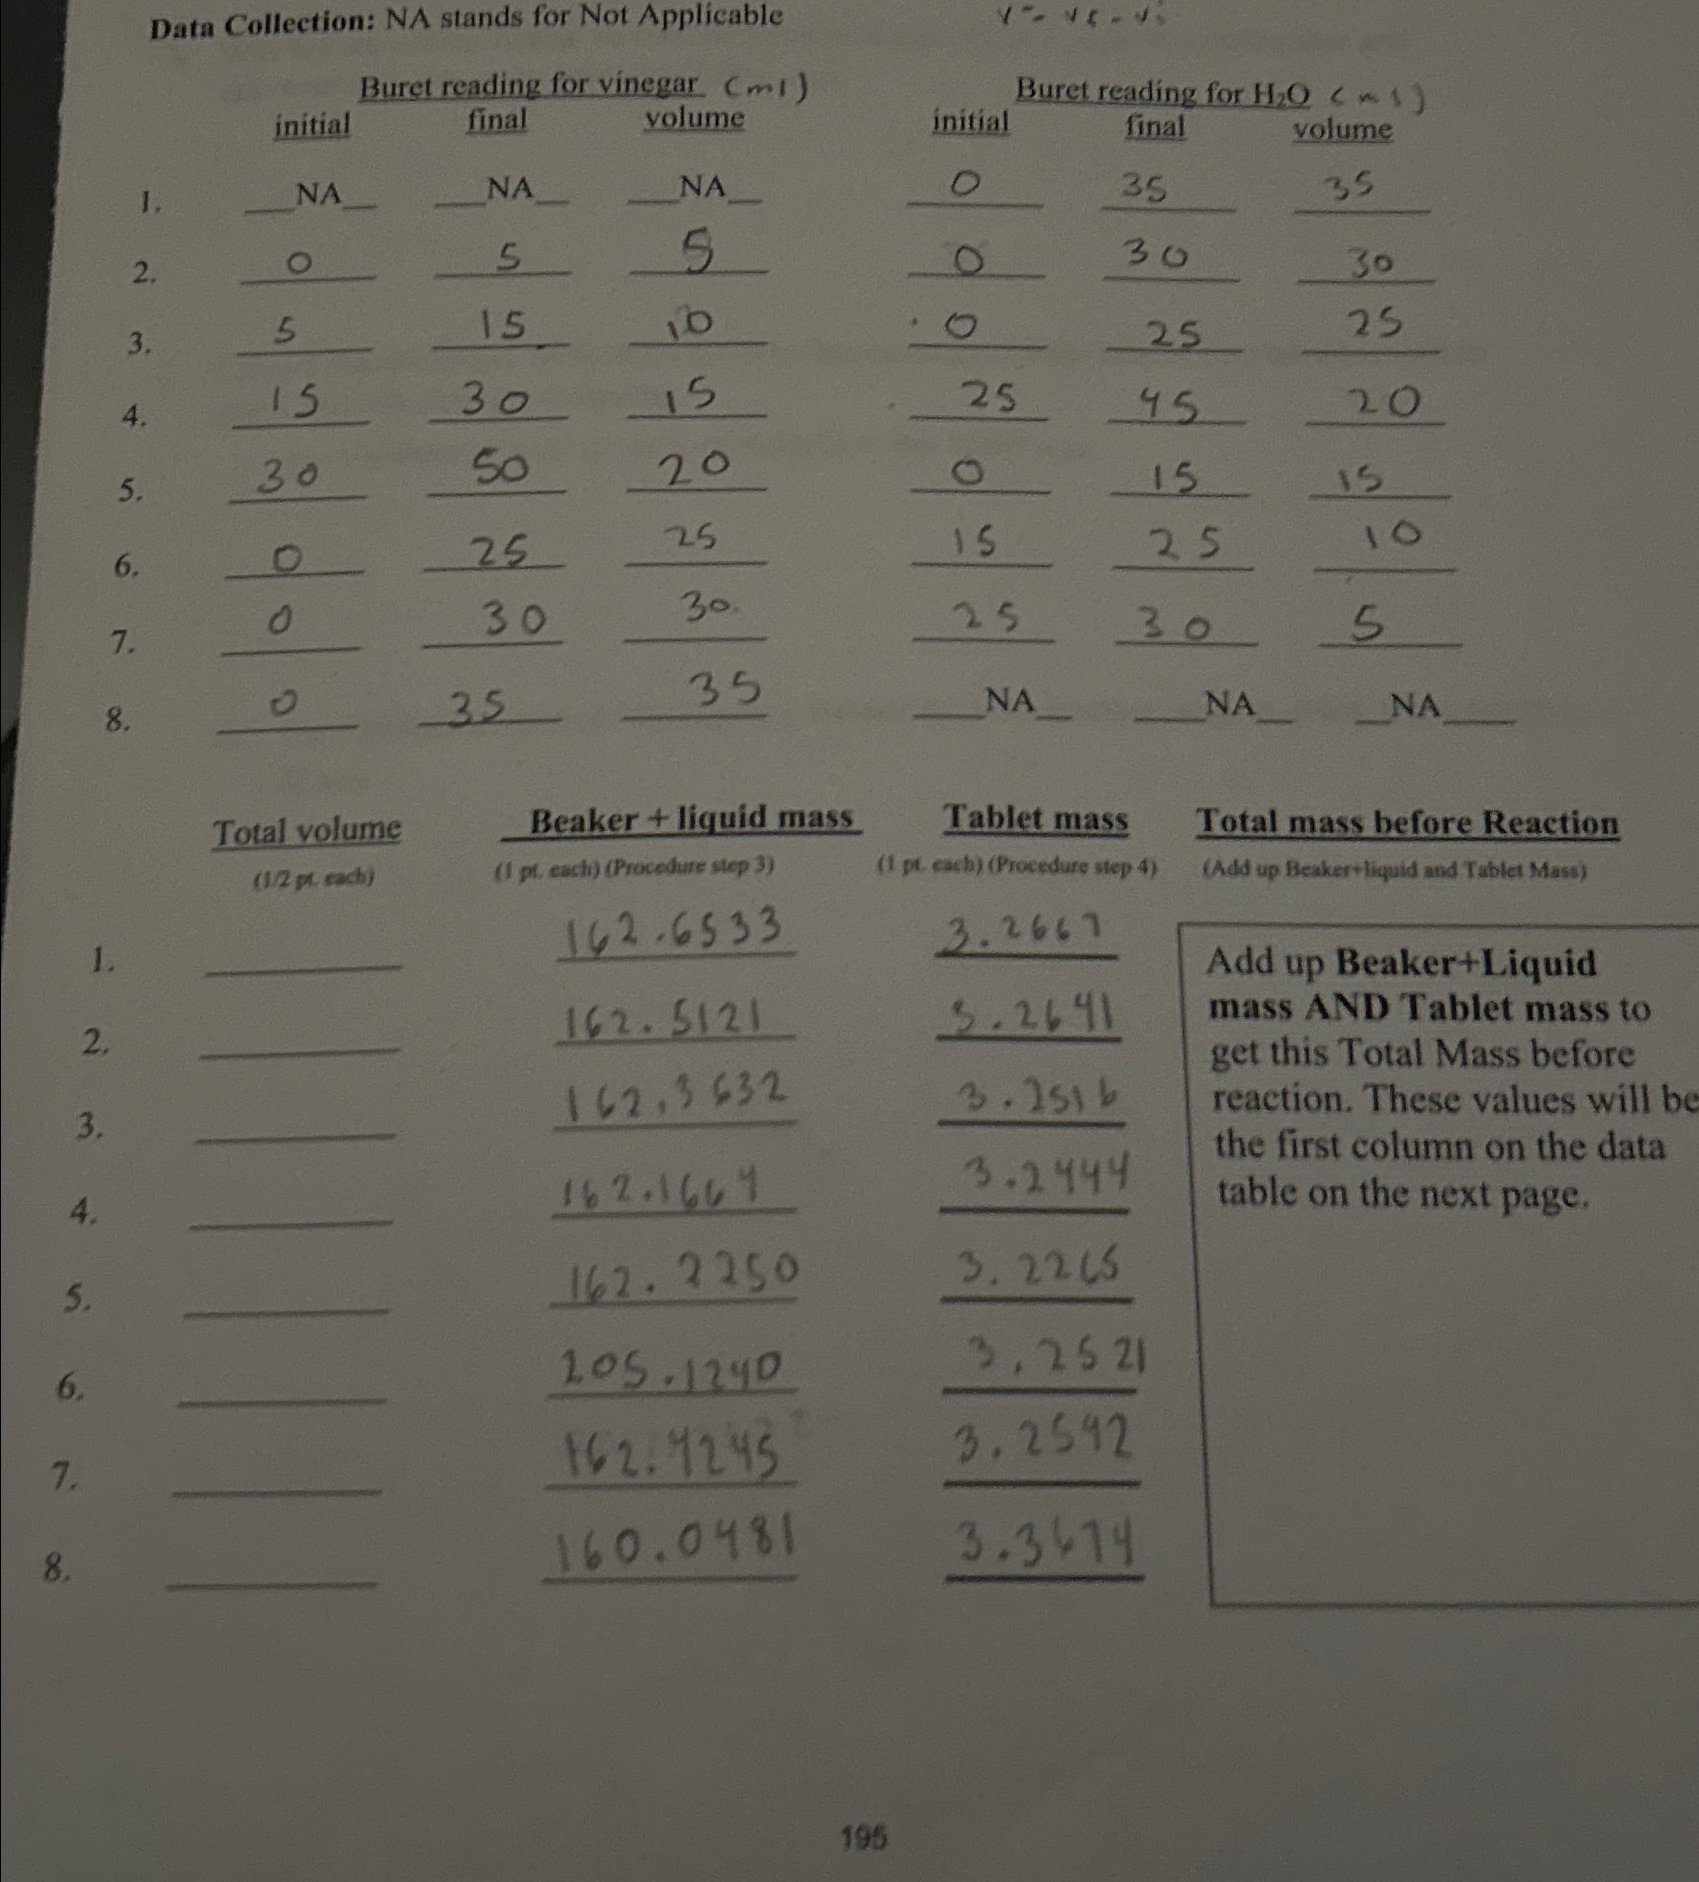 Data Collection: NA stands for Not Applicable V = Vf - Vi
Buret reading for vinegar (ml) Buret reading for H₂O (ml)
initial final volume initial final volume
1. NA NA NA 0 35 35
2. 0 5 5 0 30 30
3. 5 15 10 0 25 25
4. 15 30 15 25 45 20
5. 30 50 20 0 15 15
6. 0 25 25 15 25 10
7. 0 30 30 25 30 5
8. 0 35 35 NA NA NA
Total volume Beaker + liquid mass Tablet mass Total mass before Reaction
(1/2 pt. each) (1 pt. each) (Procedure step 3) (1 pt. each) (Procedure step 4) (Add up Beaker+liquid and Tablet Mass)
1. 162.6533 3.2667
2. 162.5121 3.2641
3. 162.3632 3.2516
4. 162.1664 3.2444
5. 162.2250 3.2265
6. 205.1240 3.2521
7. 162.4245 3.2592
8. 160.0481 3.3674
Add up Beaker+Liquid
mass AND Tablet mass to
get this Total Mass before
reaction. These values will be
the first column on the data
table on the next page.
195